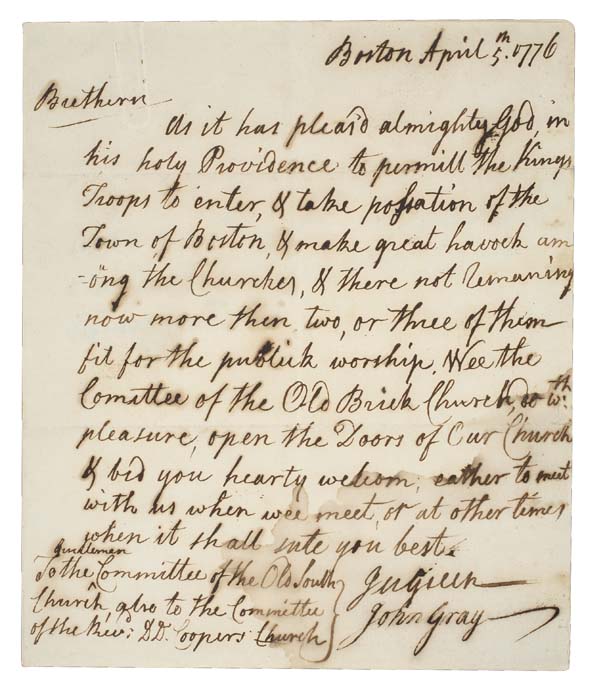 Boston April 5.th 1776
Brethern
As it has pleas'd almighty God, in
his holy Providence to permitt the Kings
Troops to enter, & take possation of the
Town of Boston, & make great havock am
-ong the Churches, & there not Remaning
now more then two, or three of them
fit for the publick worship, Wee the
Comittee of the Old Brick Church, do wth.
pleasure, open the Doors of Our Church
& bid you hearty welcom, eather to meet
with us when wee meet, or at other times
when it shall sute you best.
To the Gentlemen Committee of the Old South
Church, also to the Committee
of the Revd. DD. Coopers Church
Green
John Gray